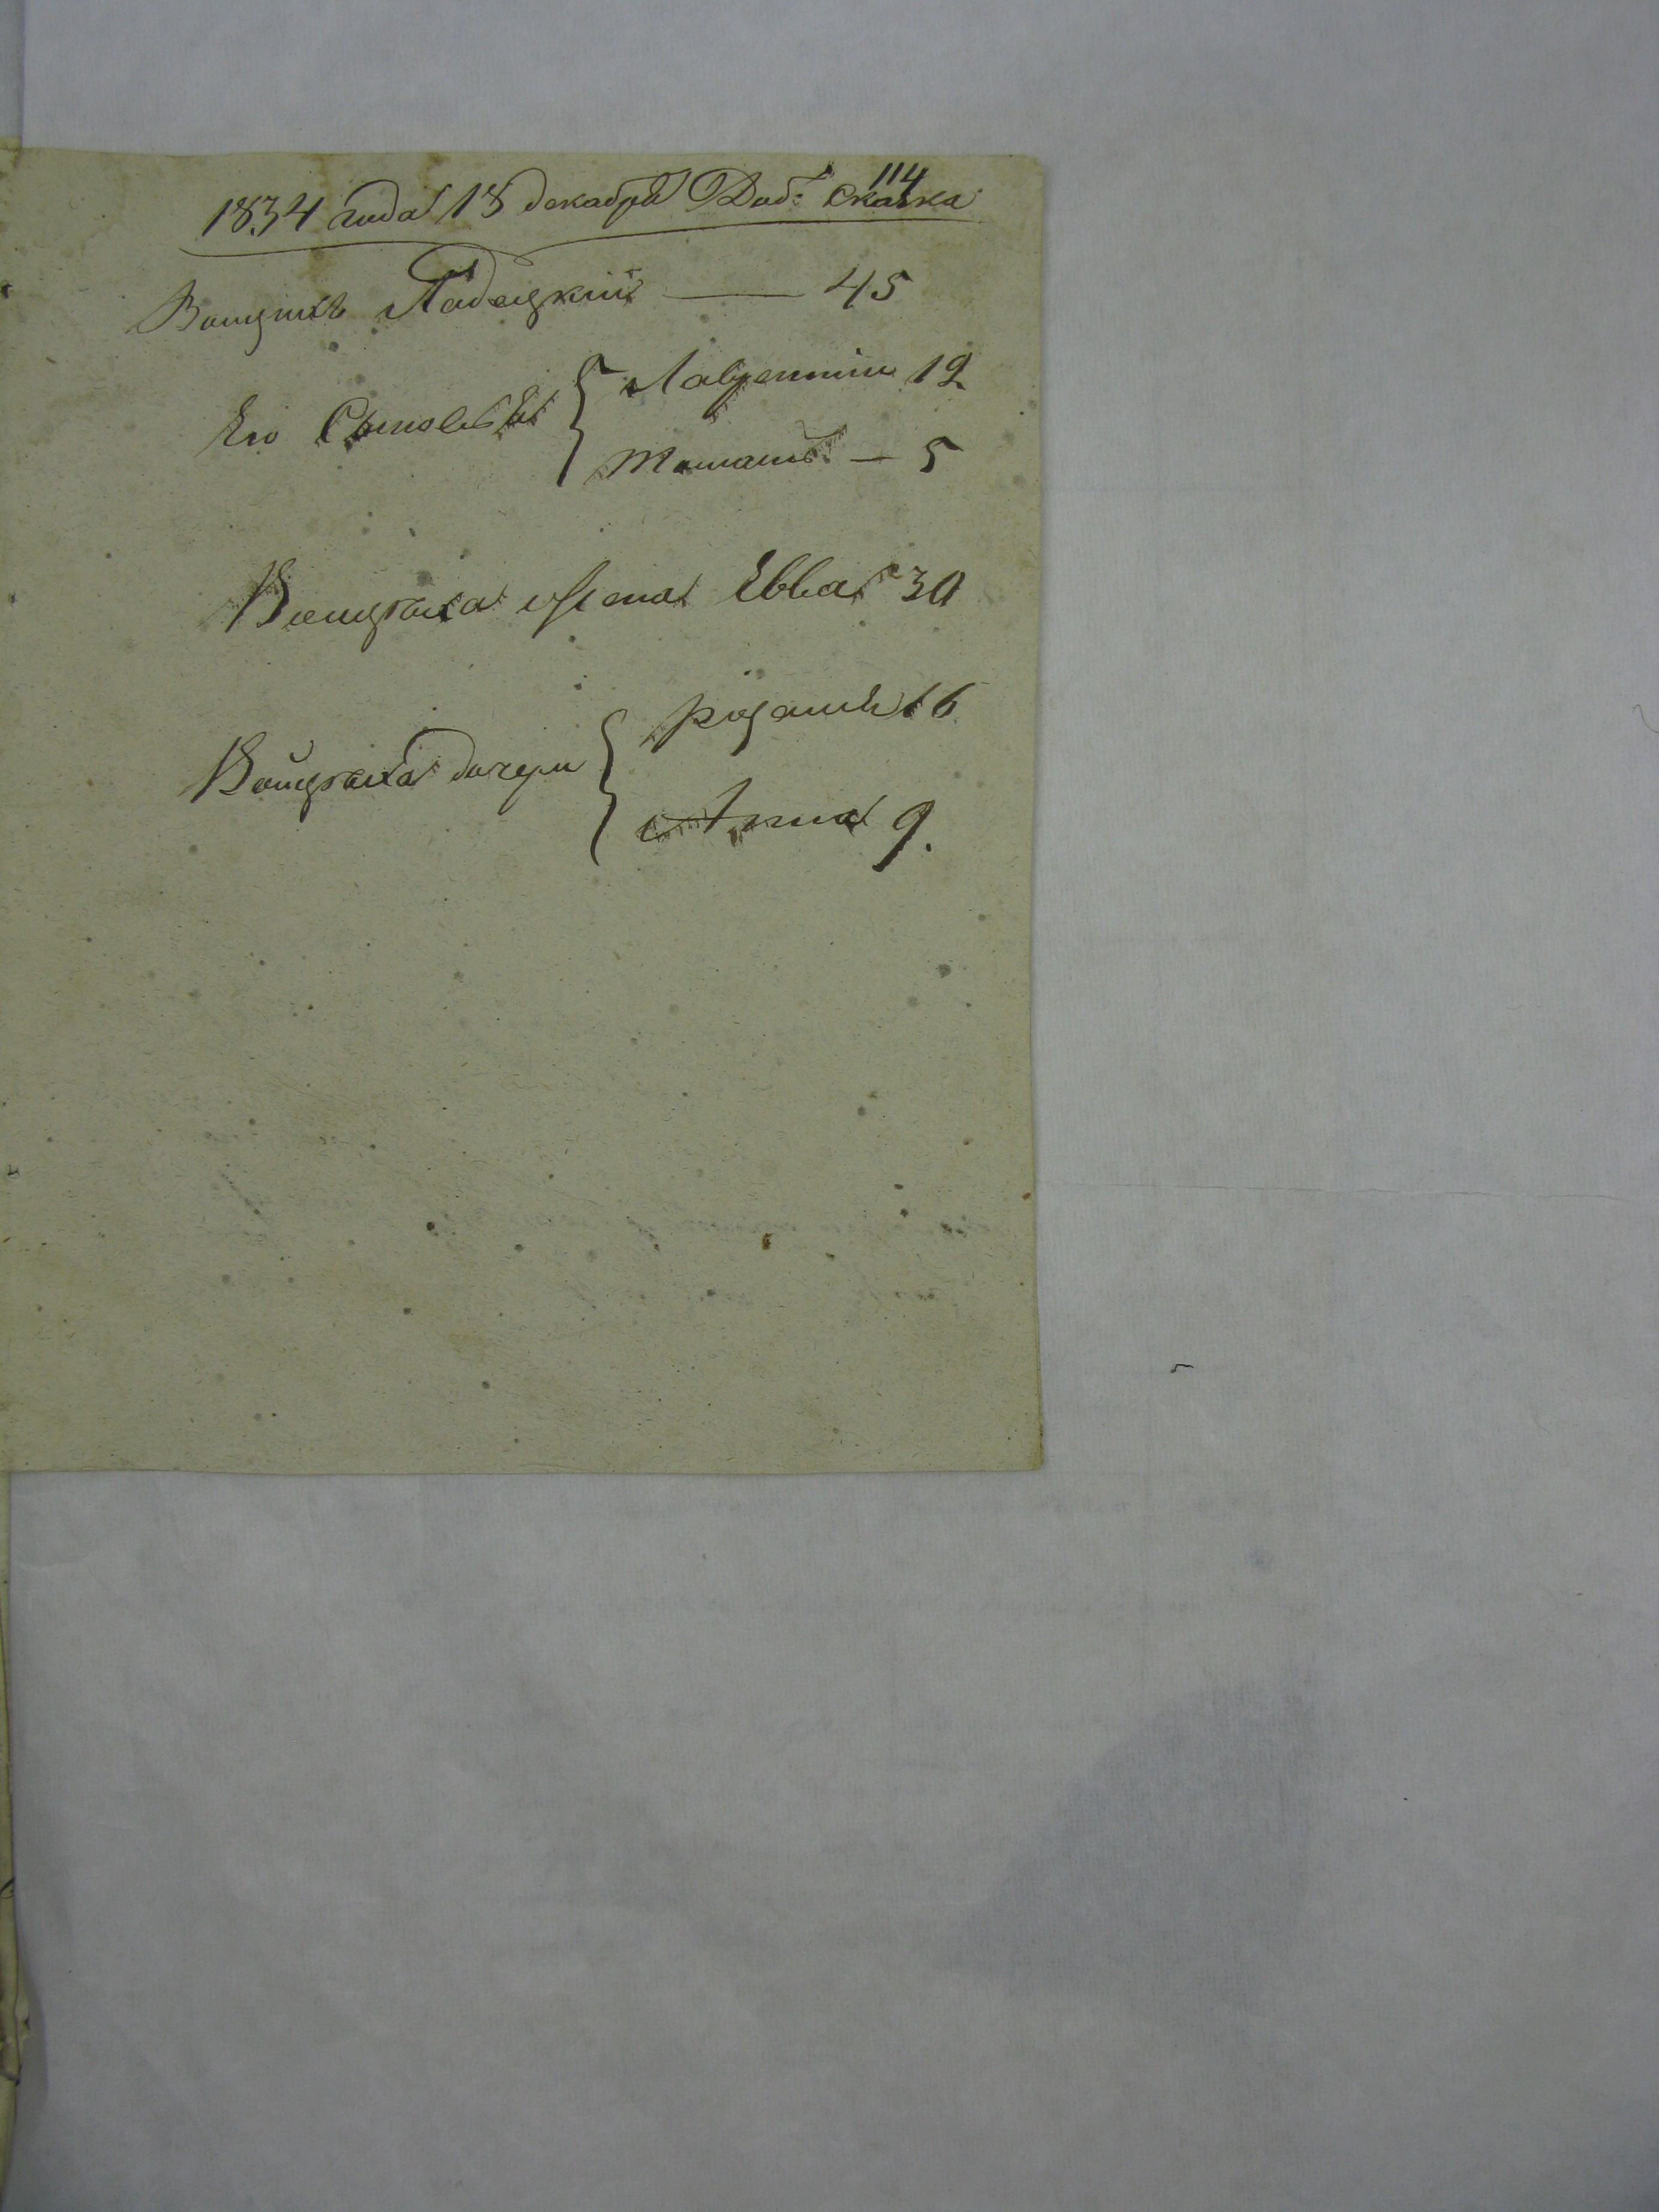 114
1834 года 18 декабря Доб: сказка
Войцехъ Падецкій — 45
Его Сыновья { Лаврентій 12
Томашъ — 5
Войцеха жена Евва 30
Войцеха дочери { 16
Анна 9.